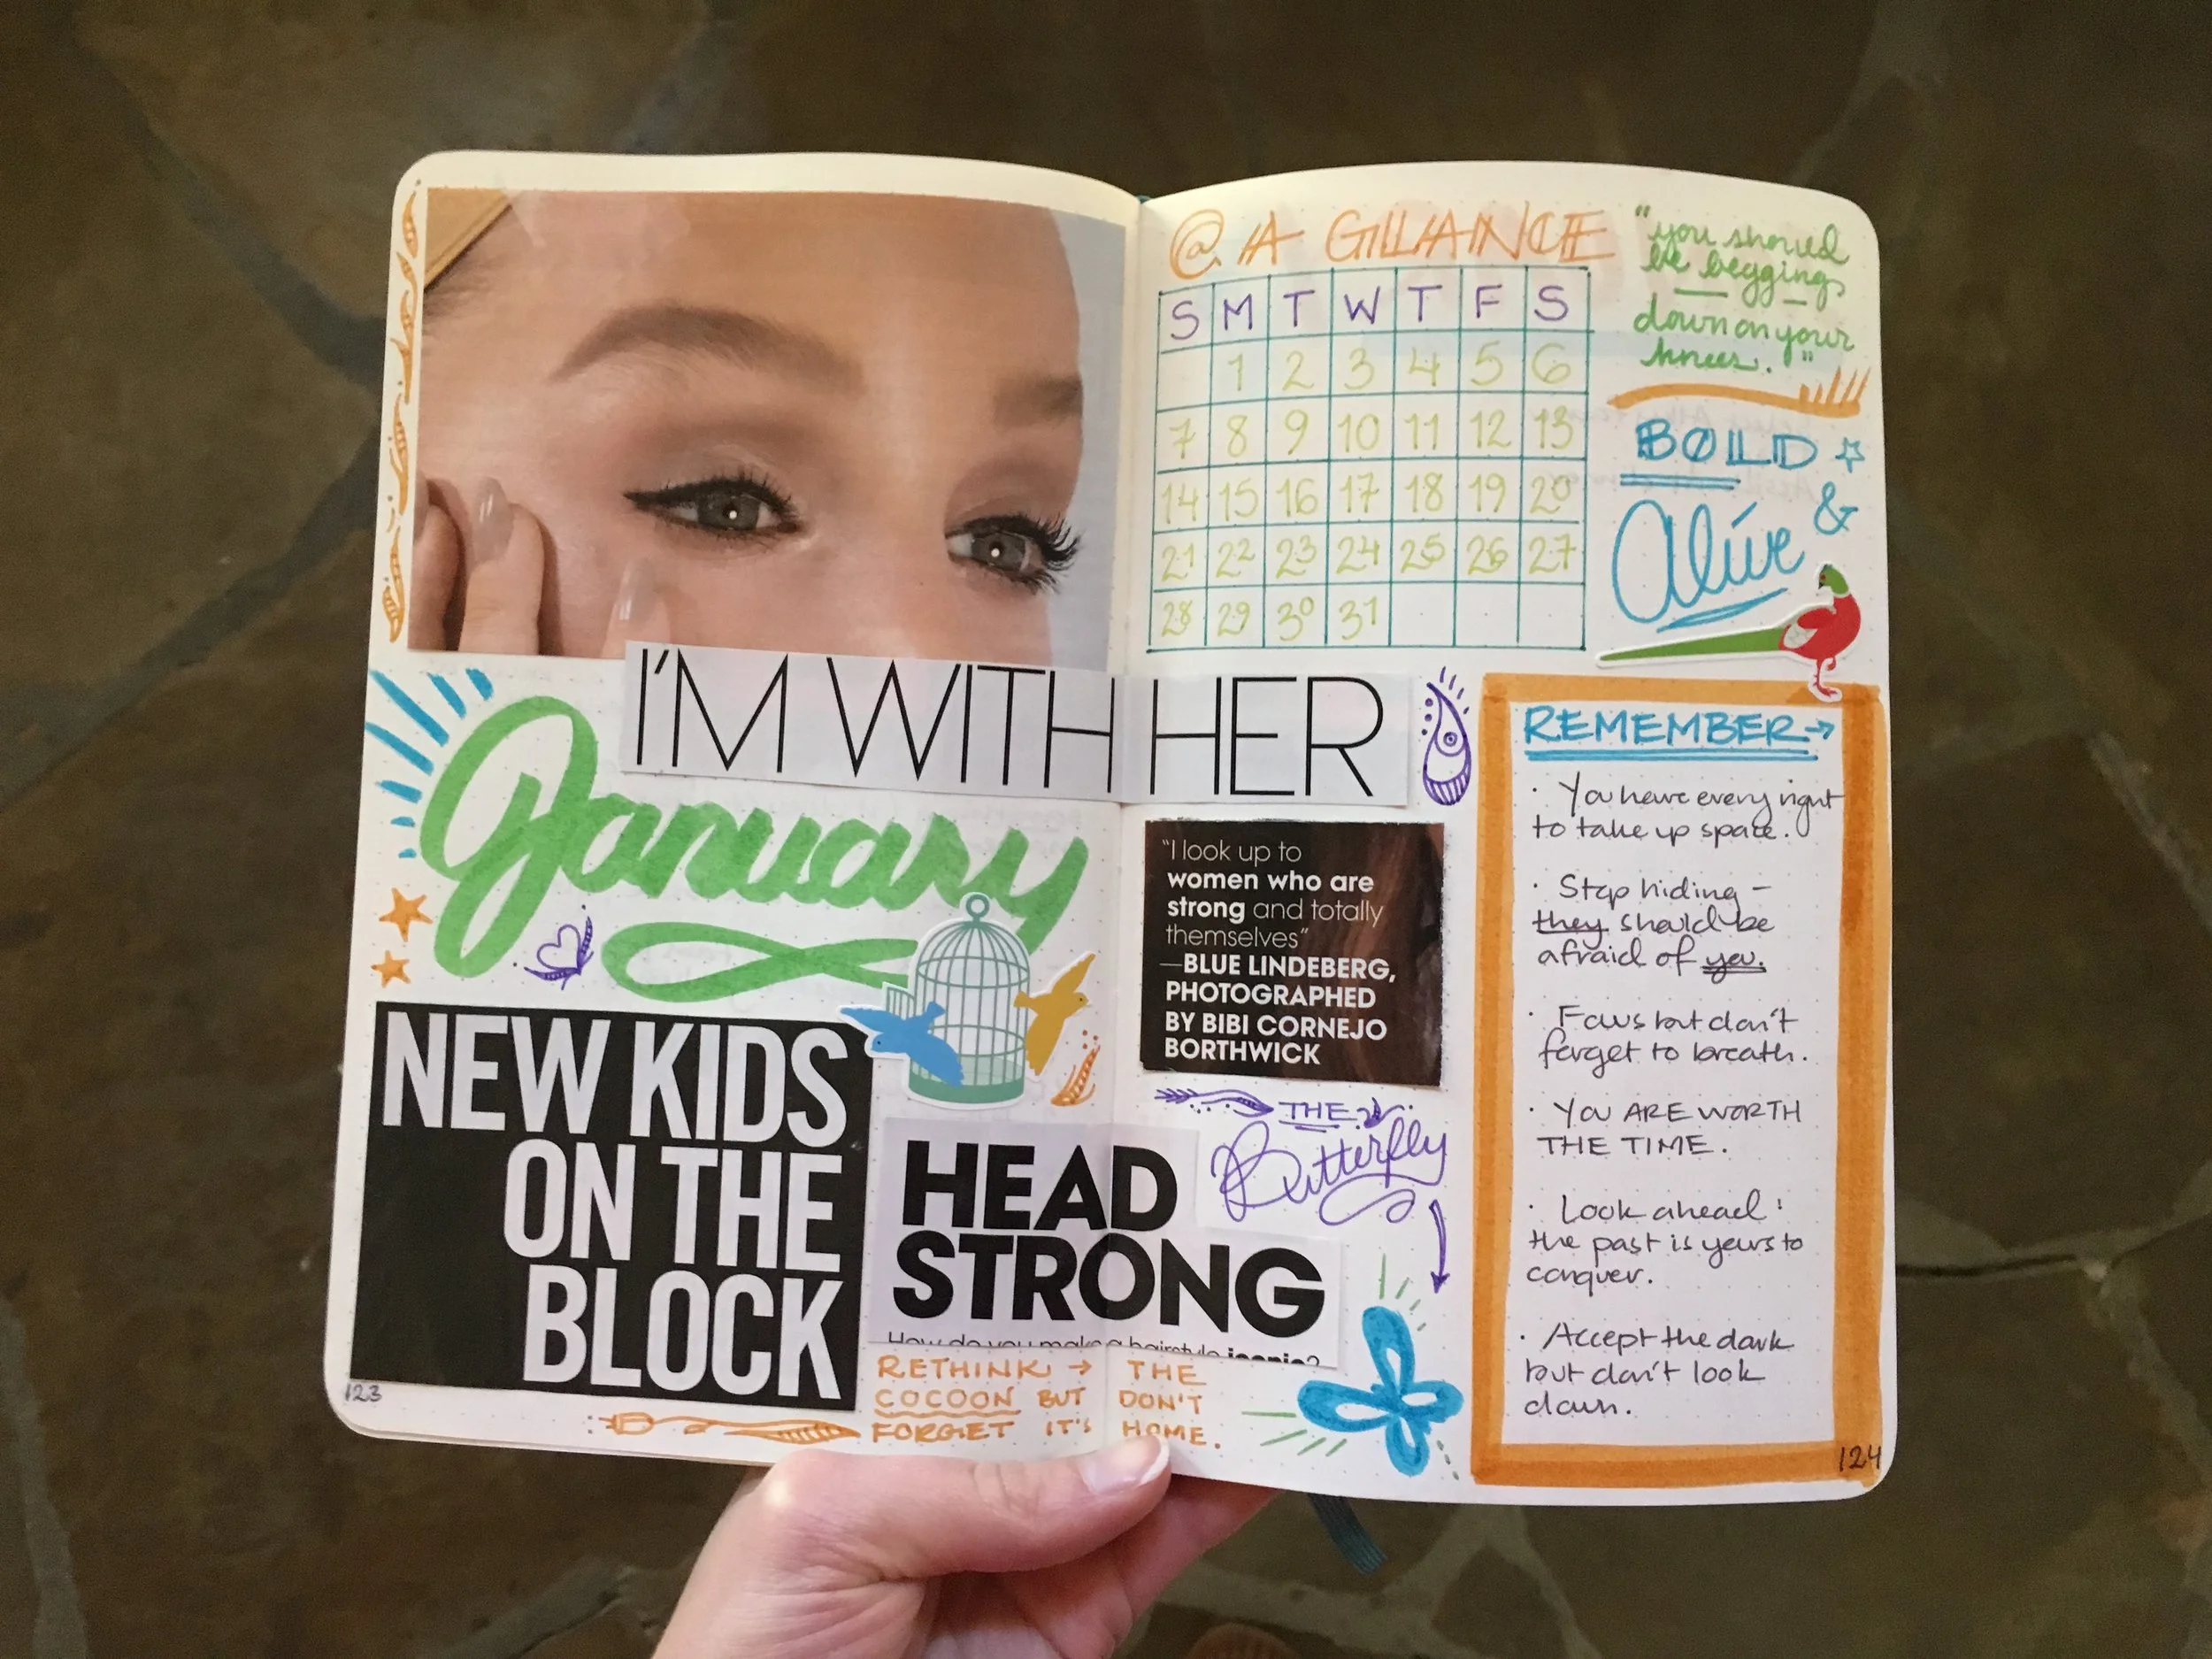 I'M WITH HER
January
NEW KIDS
ON THE
BLOCK
HEAD
STRONG
How do you make a hairstyle iconic?
RETHINK → THE
COCOON BUT DON'T
FORGET IT'S HOME.
123
@ A GLANCE
S M T W T F S
1 2 3 4 5 6
7 8 9 10 11 12 13
14 15 16 17 18 19 20
21 22 23 24 25 26 27
28 29 30 31
"you should
be begging
down on your
knees."
BOLD
&
Alive
"I look up to
women who are
strong and totally
themselves"
—BLUE LINDEBERG,
PHOTOGRAPHED
BY BIBI CORNEJO
BORTHWICK
THE
Butterfly
REMEMBER→
· You have every right
to take up space.
· Stop hiding –
they should be
afraid of you.
· Focus but don't
forget to breath.
· YOU ARE WORTH
THE TIME.
· Look ahead:
the past is yours to
conquer.
· Accept the dark
but don't look
down.
124